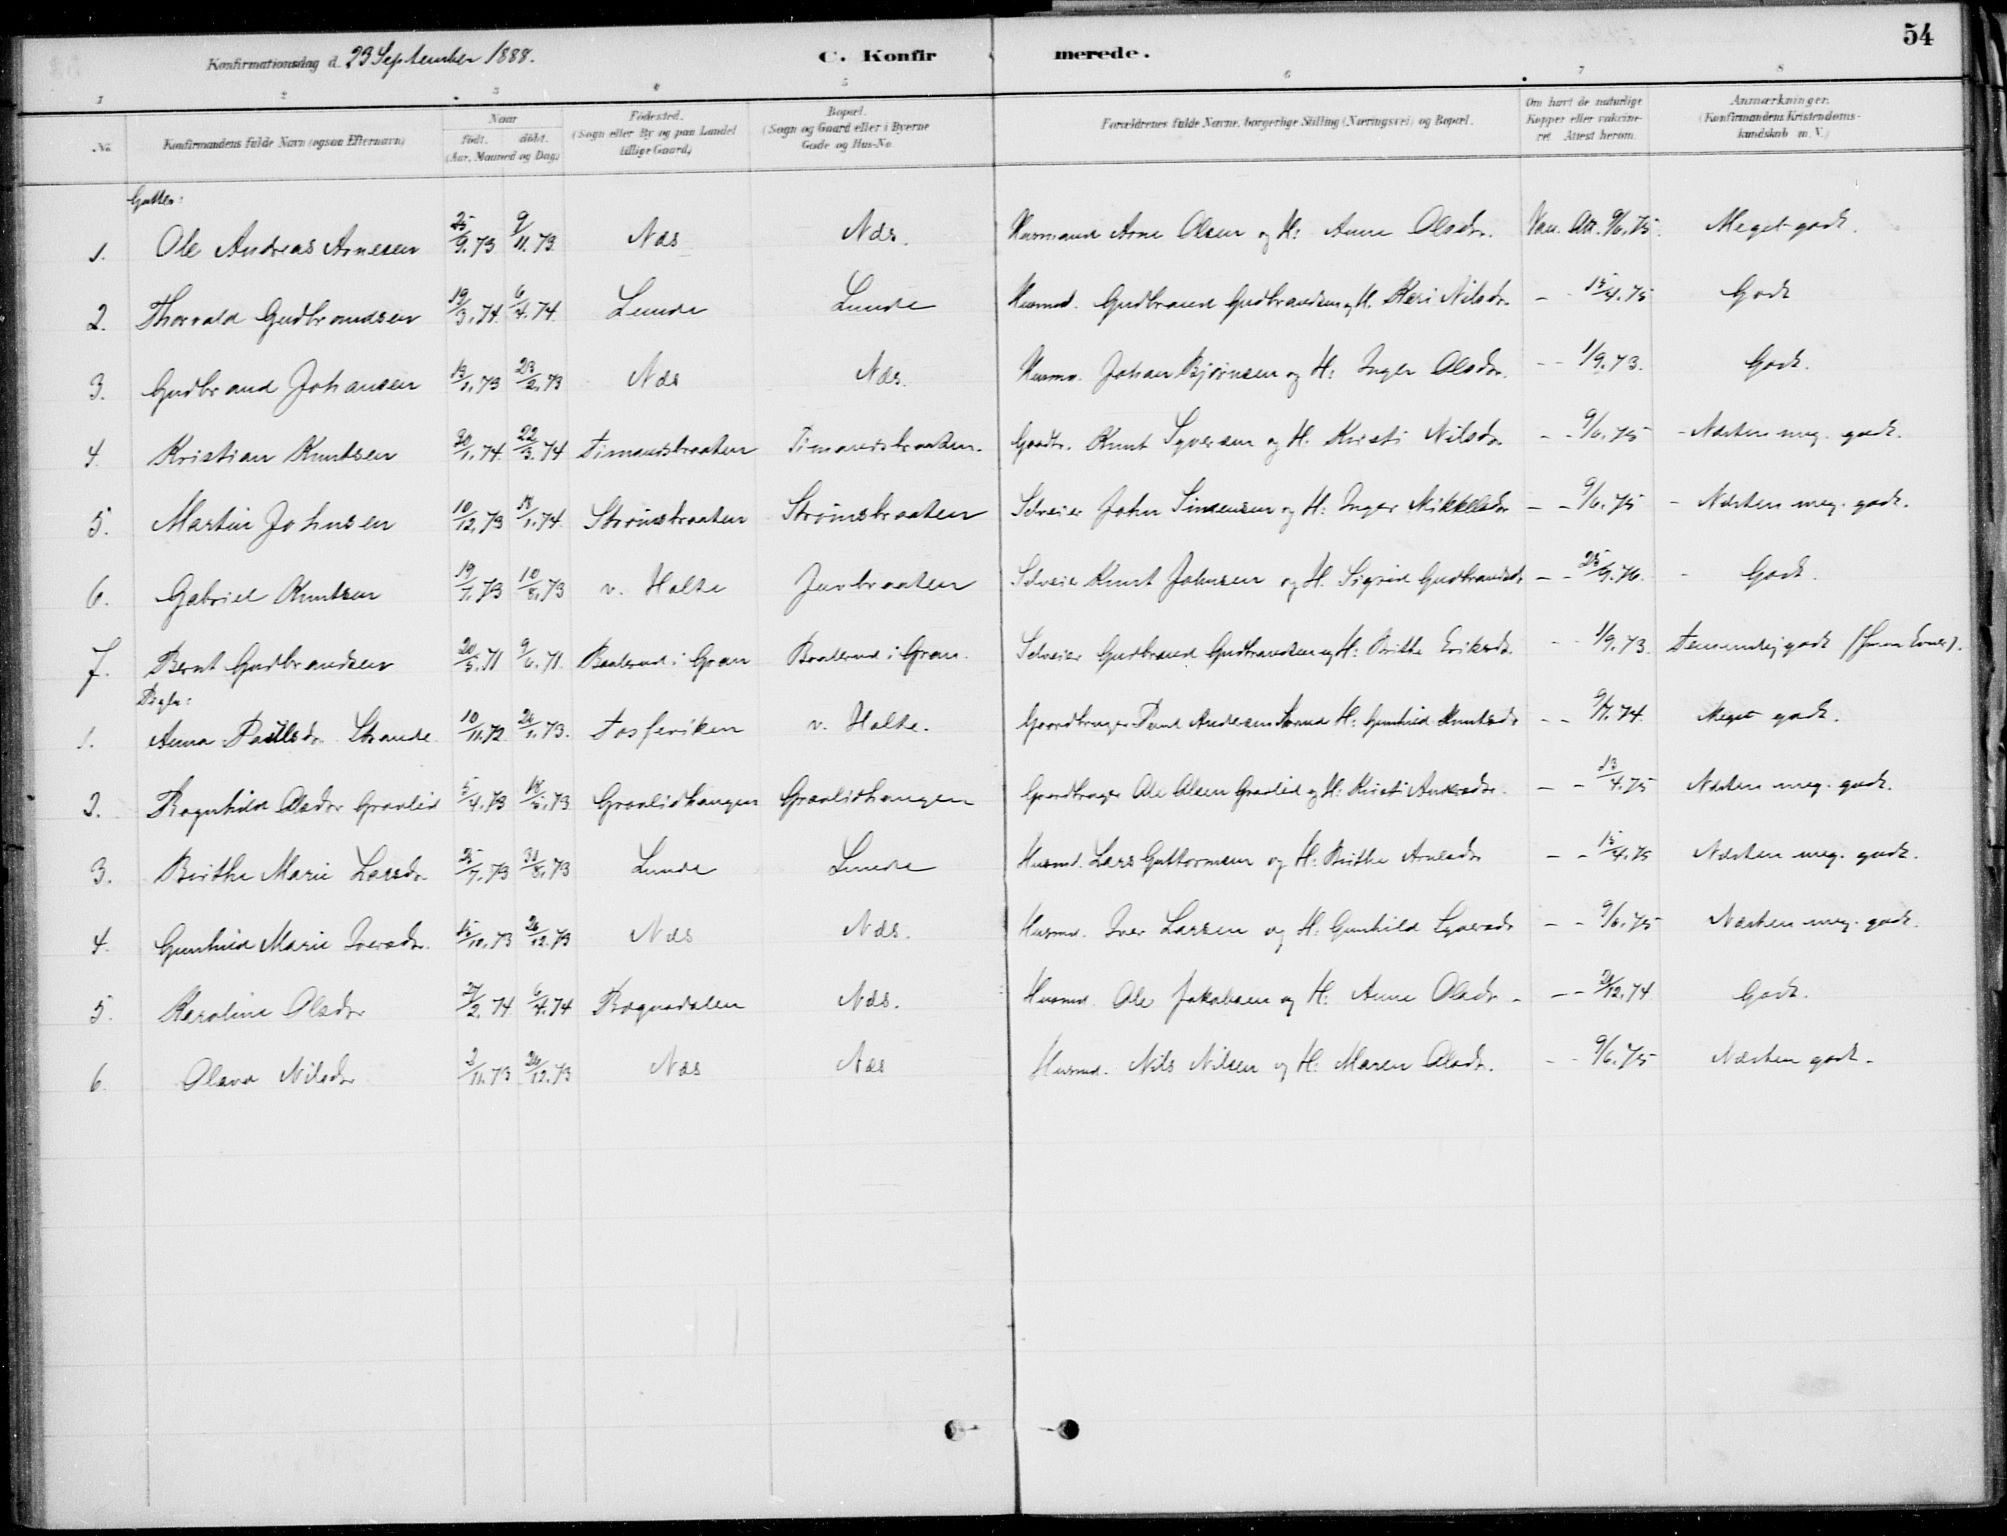 54
Konfirmationsdag d. 23 September 1888.
C. Konfirmerede.
1 2 3 4 5 6 7 8
No. Konfirmandens fulde Navn (ogsaa Efternavn) Naar født. døbt. (Aar, Maaned og Dag.) Fødested. (Sogn eller By og paa Landet tillige Gaard) Bopæl. (Sogn og Gaard eller i Byerne Gade og Hus-No. Forældrenes fulde Navne, borgerlige Stilling (Næringsvei) og Bopæl. Om havt de naturlige Kopper eller vakcineret. Attest herom. Anmærkninger. (Konfirmandens Kristendomskundskab m. V.)
Gutter:
1. Ole Andreas Arnesen 25/9.73 9/11.73 Næs Næs. Husmand Arne Olsen og H: Anne Olsdr. Vac. Att. 9/6.75. Meget godt.
2. Thorvald Gudbrandsen 19/3.74 6/4.74 Lunde Lunde Husmd. Gudbrand Gudbrandsen og H. Kari Nilsdr. - - 15/4.75 Godt
3. Gudbrand Johansen 13/1.73 23/2.73 Næs Næs. Husm. Johan Bjørnsen og H: Inger Olsdr. - - 1/9.73. Godt.
4. Kristian Knutsen 20/1.74 22/3.74 Timansbraaten Timansbraaten. Gaardbr. Knut Syversen og H. Kristi Nilsdr. - - 9/6.75 - Næsten meg. godt.
5. Martin Johnsen 10/12.73 18/1.74 Strømsbraaten Strømsbraaten Selveier John Simensen og H: Inger Mikkelsdr - - 9/6.75 - Næsten meg. godt.
6. Gabriel Knutsen 19/7.73 10/8.73 v. Halte Juvbraaten Selveier Knut Johnsen og H. Sigrid Gudbrandsd. - - 25/9.76. - Godt.
7. Bernt Gudbrandsen 20/5.71 9/6.71. Baalerud i Gran Baalerud i Gran. Selveier Gudbrand Gudbrandsen og H: Birthe Eriksdr. - - 1/9.73. Temmelig godt
Piger:
1. Anna Paulsdr. Strande 10/11.72 26/1.73. Tosseviken v. Halte. Gaardbruger Paul Andersen Strande H: Gunhild Knutsdr - - 9/7.74 Meget godt.
2. Ragnhild Olsdr Graalid 5/4.73 18/5.73 Graalidhaugen Graalidhaugen Gaardbruger Ole Olsen Graalid og H: Kristi Andersdr. - - 13/4.75 Næsten meg. godt.
3. Birthe Marie Larsdr. 25/7.73 31/8.73 Lunde Lunde Husmd. Lars Guttormsen og H: Birthe Arnesdr - - 15/4.75 Næsten meg. godt.
4. Gunhild Marie Iversdr. 15/10.73 26/12.73 Næs Næs. Husmd. Iver Larsen og H: Gunhild Syversdr - - 9/6.75 Næsten meg. godt.
5. Karoline Olsdr 27/2.74 6/4.74 Bægnadalen Næs. Husmd. Ole Jakobsen og H: Anne Olsdr. - - 31/12.74 Godt.
6. Olava Nilsdr 2/11.73 26/12.73 Næs Næs Husmd. Nils Nilsen og H: Maren Olsdr. - - 9/6.75 Næsten godt.